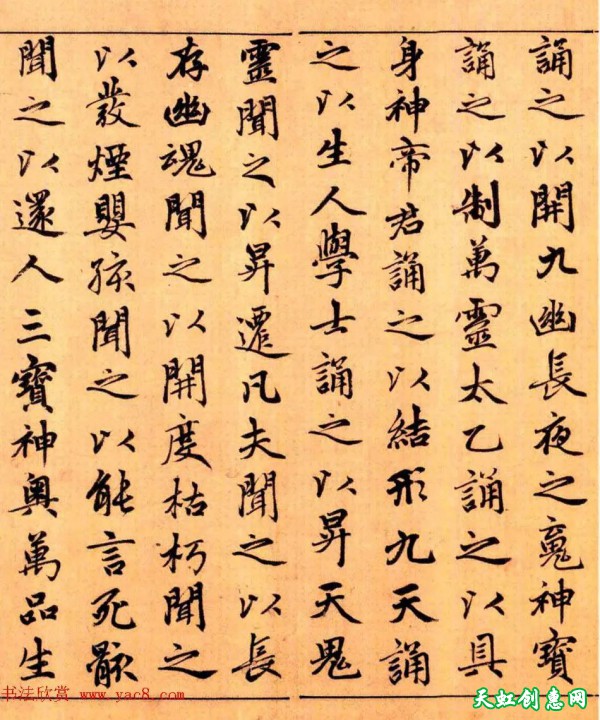 誦之以開九幽長夜之魂神寶
誦之以制萬靈太乙誦之以具
身神帝君誦之以結形九天誦
之以生人學士誦之以昇天鬼
靈聞之以昇遷凡夫聞之以長
存幽魂聞之以開度枯朽聞之
以發煙嬰孩聞之以能言死骸
聞之以還人三寶神奧萬品生
书法欣赏 www.yac8.com
天虹创惠网